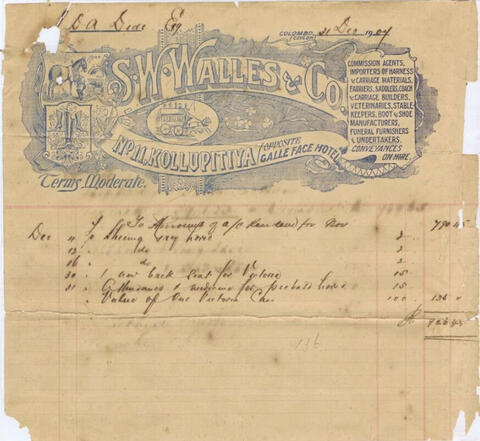 D A Dede Esq.
COLOMBO, CEYLON
31 Dec 1907
S.W. WALLES & CO.
COMMISSION AGENTS,
IMPORTERS OF HARNESS
& CARRIAGE MATERIALS,
FARRIERS, SADDLERS, COACH
& CARRIAGE BUILDERS,
VETERINARIES, STABLE-
KEEPERS, BOOT & SHOE
MANUFACTURERS,
FUNERAL FURNISHERS
& UNDERTAKERS.
CONVEYANCES
ON HIRE.
No 11. KOLLUPITIYA
OPPOSITE
GALLE FACE HOTEL
Terms Moderate.
To Amount of a/c rendered for Nov
Dec 11 Shoeing grey horse 2
do 2
do 2
30 1 new back seat for Victoria 15
31 medicine for horse 15
Value of One Victoria 100 136
136